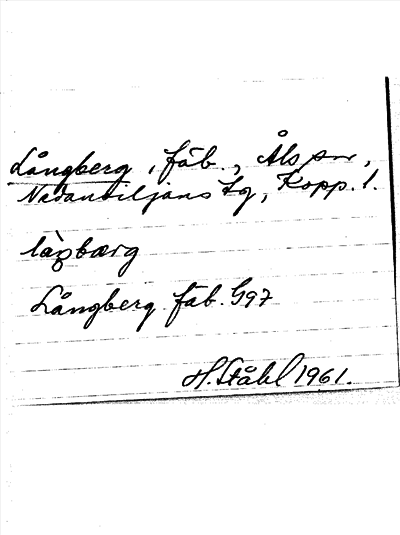 Långberg, fäb., Åls sn,
Nedansiljans tg, Kopp. l.
làŋbærg
Långberg fäb. G97
H. Ståhl 1961.